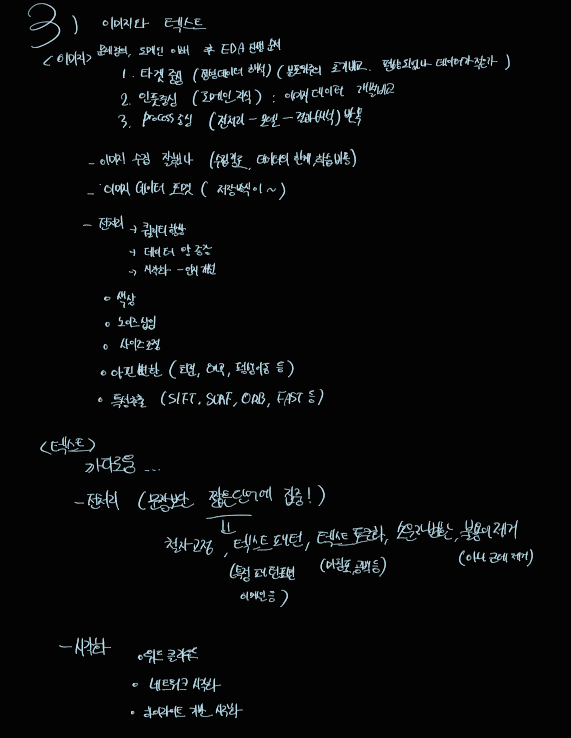 3) 이미지와 텍스트
<이미지> 문제정의, 도메인 이해 후 EDA 진행 순서
1. 타겟 중심 (정형데이터 해석) (분포위주의 크기비교. 편향되었나 데이터가 작은가)
2. 인풋중심 (도메인 지식) : 이미지 데이터 개별비교
3. process 중심 (전처리 - 모델 - 결과해석) 반복
- 이미지 수집 잘됐나 (수집경로, 데이터의 한계, 학습비용)
- 이미지 데이터 포맷 (저장방식이 ~)
- 전처리 → 퀄리티 향상
→ 데이터 양 증강
→ 시각화 - 인지 개선
• 색상
• 노이즈 삽입
• 사이즈 조정
• 아핀변환 (회전, 평행이동 등)
• 특성추출 (SIFT, SURF, ORB, FAST 등)
<텍스트>
까다로움 ...
- 전처리 (문장보단 짧은단어에 집중!)
철자교정, 텍스트 패턴, 텍스트 토큰화, 불용어 제거
(특정 패턴표현 (마침표, 공백 등) (아니 근데 제거)
이메일 등)
- 시각화 • 워드 클라우드
• 네트워크 시각화
• 하이라이트 기반 시각화